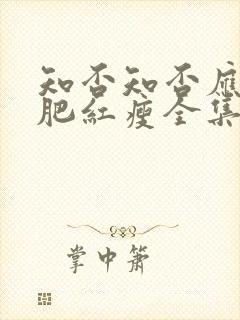 知否知否應
肥紅瘦全集
掌中簫